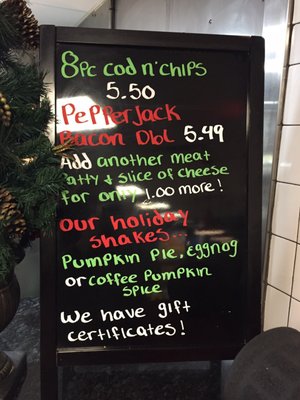 8pc Cod n' Chips
5.50
Pepperjack
Bacon Dbl 5.49
Add another meat
Patty & slice of cheese
for only 1.00 more!
Our holiday
shakes...
Pumpkin Pie, Eggnog
or coffee Pumpkin
Spice
We have gift
certificates!